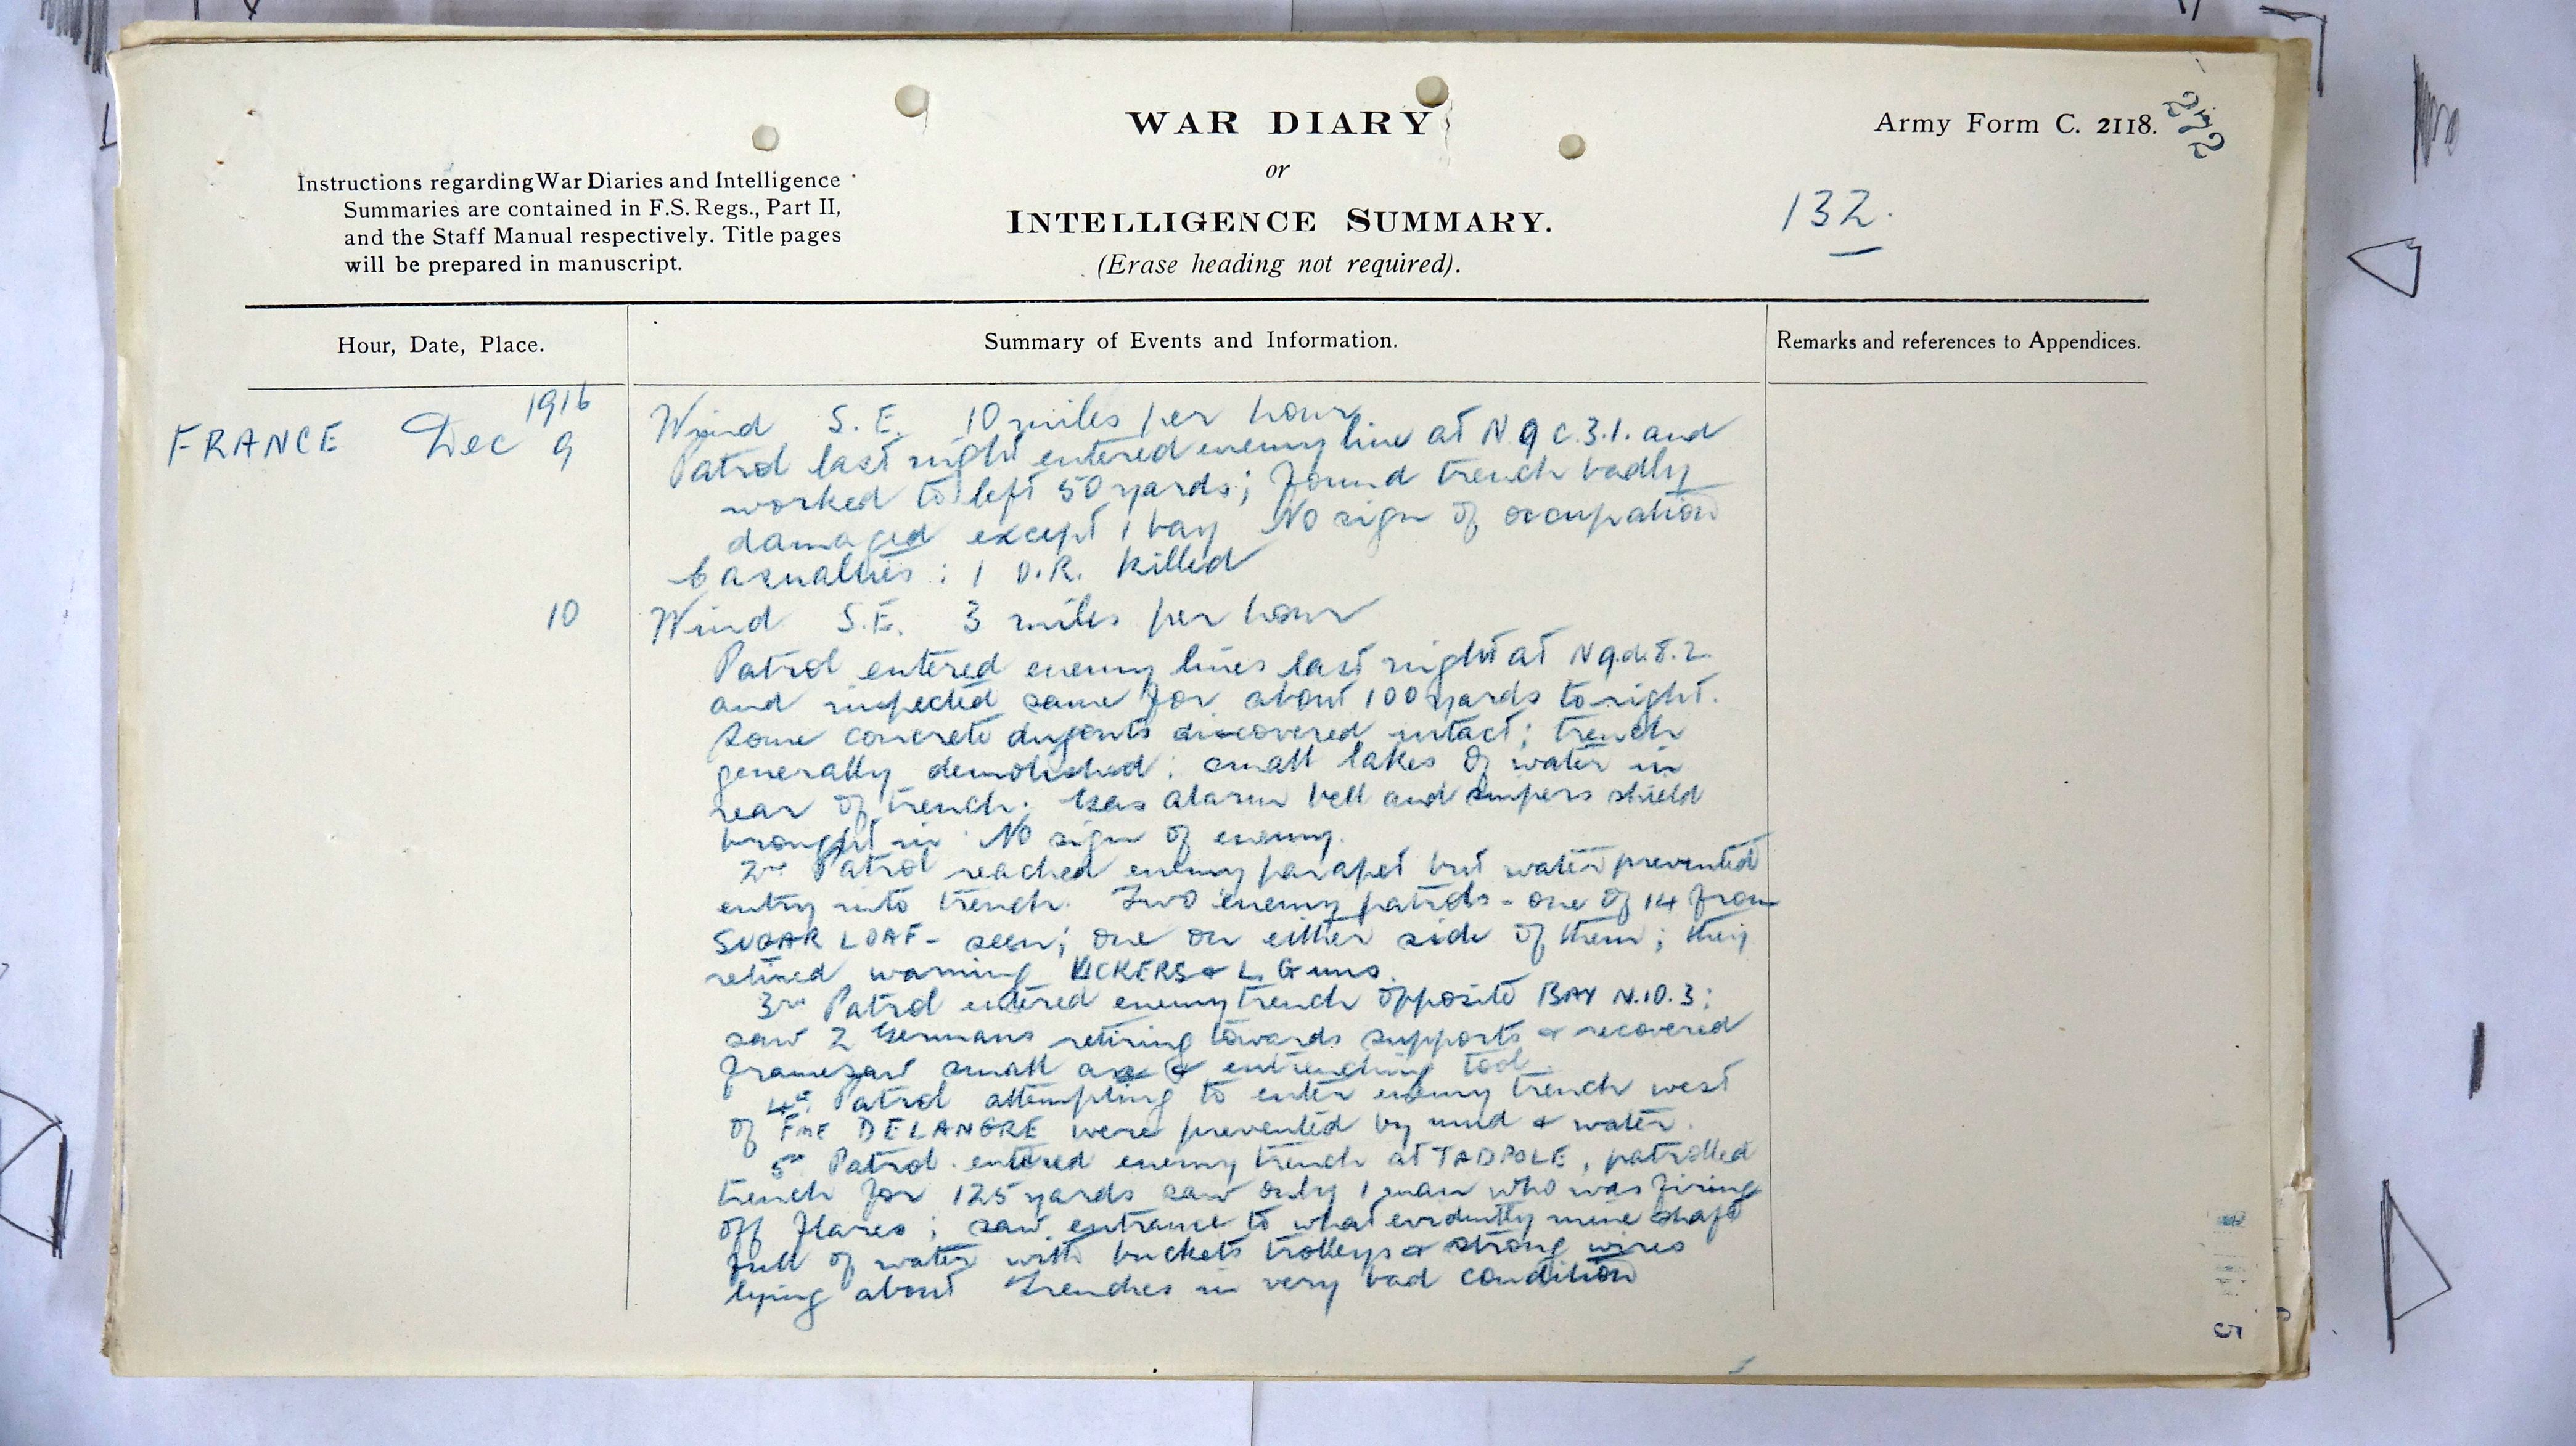 WAR DIARY
or
INTELLIGENCE SUMMARY.
(Erase heading not required).
Army Form C. 2118.
132.
Instructions regarding War Diaries and Intelligence
Summaries are contained in F.S. Regs., Part II,
and the Staff Manual respectively. Title pages
will be prepared in manuscript.
Hour, Date, Place.
Summary of Events and Information.
Remarks and references to Appendices.
1916
FRANCE Dec 9
Wind S.E. 10 miles per hour
Patrol last night entered enemy line at N 9 c.3.1. and
worked to left 50 yards; found trench badly
damaged except 1 bay No sign of occupation
Casualties: 1 O.R. killed
10
Wind S.E. 3 miles per hour
Patrol entered enemy lines last night at N 9.d.8.2.
and inspected same for about 100 yards to right.
Some concrete dugouts discovered intact; trench
generally demolished: small lakes of water in
rear of trench. Gas alarm bell and snipers shield
brought in. No sign of enemy.
2nd Patrol reached enemy parapet but water prevented
entry into trench. Two enemy patrols - one of 14 from
SUGAR LOAF - seen; one on either side of them; they
retired warning VICKERS & L. Guns.
3rd Patrol entered enemy trench opposite BAY N.10.3:
saw 2 Germans retiring towards supports & recovered
small axe & entrenching tool.
4th Patrol attempting to enter enemy trench west
of Fme DELANGRE were prevented by mud & water.
5th Patrol entered enemy trench at TADPOLE, patrolled
trench for 125 yards saw only 1 man who was firing
off flares; saw entrance to what evidently mine shaft
full of water with buckets trolleys & strong wires
lying about Trenches in very bad condition
5